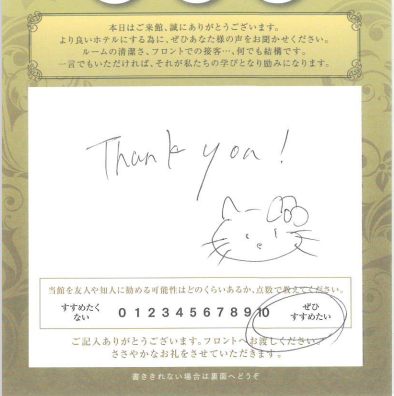 本日はご来館、誠にありがとうございます。
より良いホテルにする為に、ぜひあなた様の声をお聞かせください。
ルームの清潔さ、フロントでの接客…、何でも結構です。
一言でもいただければ、それが私たちの学びとなり励みになります。
Thank you!
当館を友人や知人に勧める可能性はどのくらいあるか、点数で教えてください。
すすめたくない 0 1 2 3 4 5 6 7 8 9 10 ぜひすすめたい
ご記入ありがとうございます。フロントへお渡しください。
ささやかなお礼をさせていただきます。
書ききれない場合は裏面へどうぞ